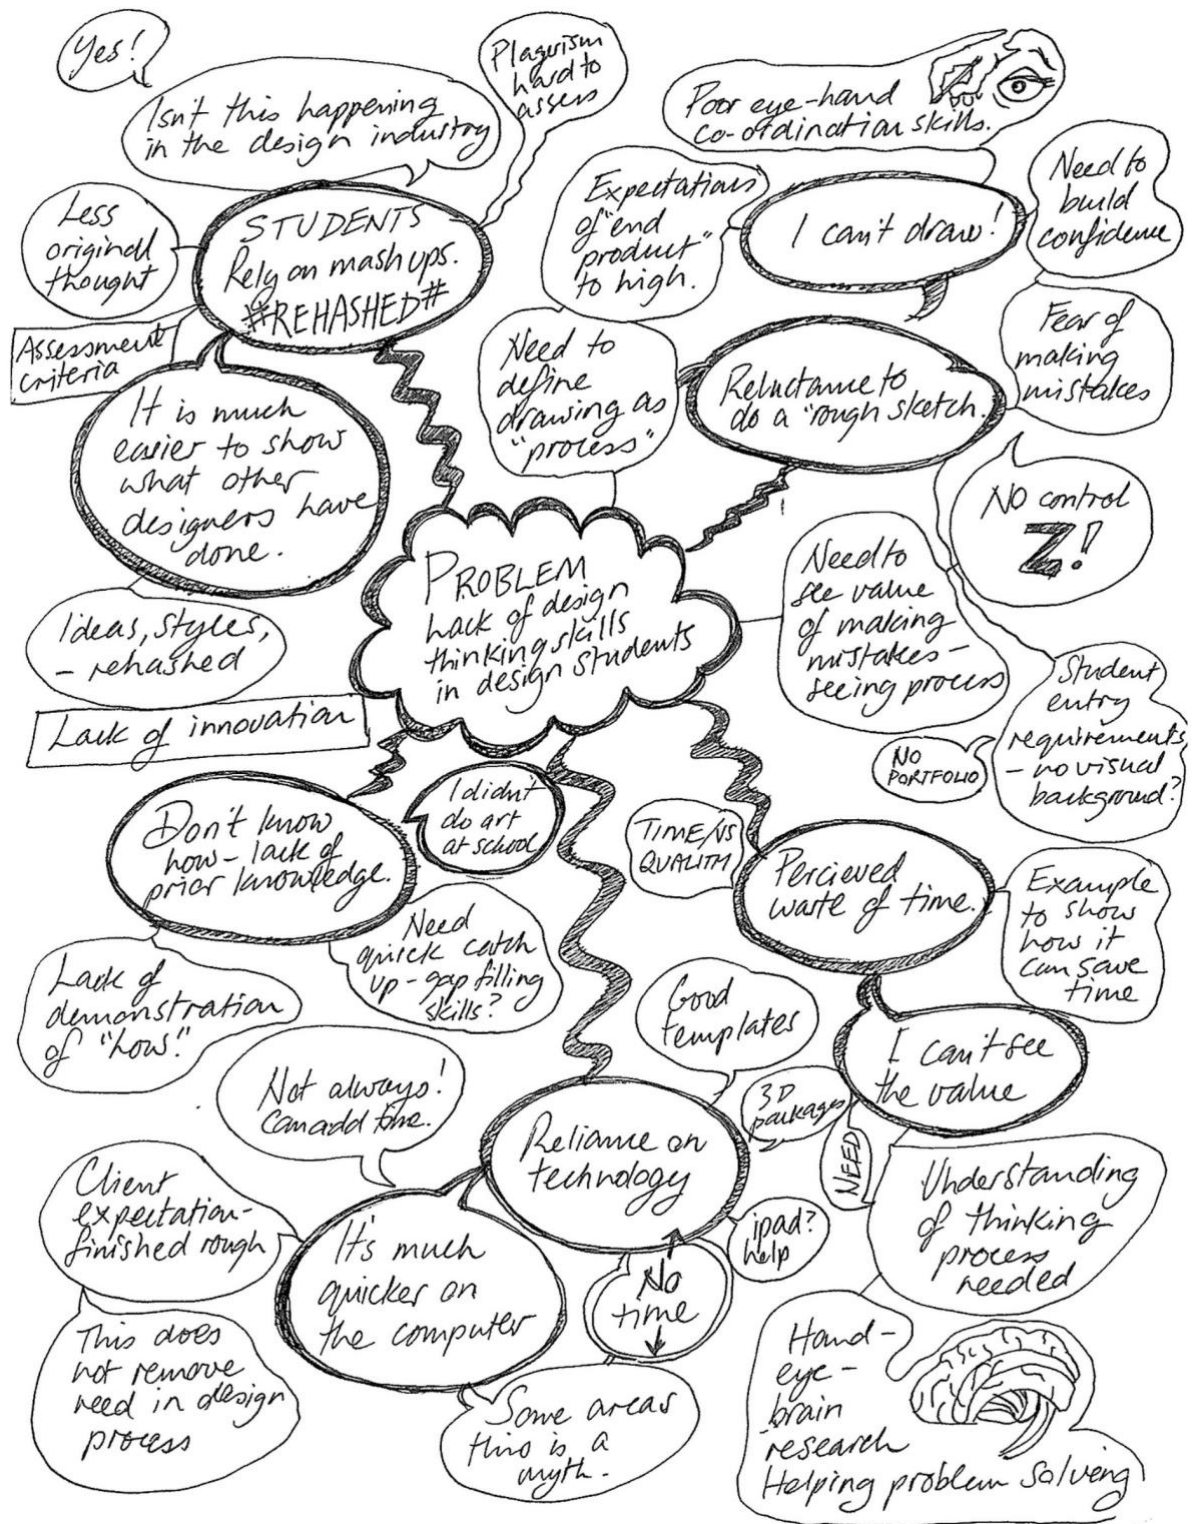 Yes!
Isn't this happening
in the design industry
Plagerism
hard to
assess
Poor eye-hand
co-ordination skills.
Less
original
thought
STUDENTS
Rely on mashups.
#REHASHED#
Expectations
of "end
product"
to high.
I can't draw!
Need to
build
confidence
Assessment
criteria
It is much
easier to show
what other
designers have
done.
Need to
define
drawing as
"process"
Reluctance to
do a "rough sketch.
Fear of
making
mistakes
NO control
Z!
Ideas, styles,
- rehashed
Lack of innovation
PROBLEM
Lack of design
thinking skills
in design students
Need to
see value
of making
mistakes -
seeing process
Student
entry
requirements
- no visual
background?
NO
PORTFOLIO
Don't know
how - lack of
prior knowledge.
I didn't
do art
at school
TIME/VS
QUALITY
Percieved
waste of time.
Example
to show
how it
can save
time
Need
quick catch
up - gap filling
skills?
Lack of
demonstration
of "how."
Good
templates
I can't see
the value
Not always!
Can add time.
Reliance on
technology
3D
packages
NEED
Understanding
of thinking
process
needed
Client
expectation-
finished rough
It's much
quicker on
the computer
No
time
ipad?
help
This does
not remove
need in design
process
Some areas
this is a
myth.
Hand-
eye-
brain
research
Helping problem solving